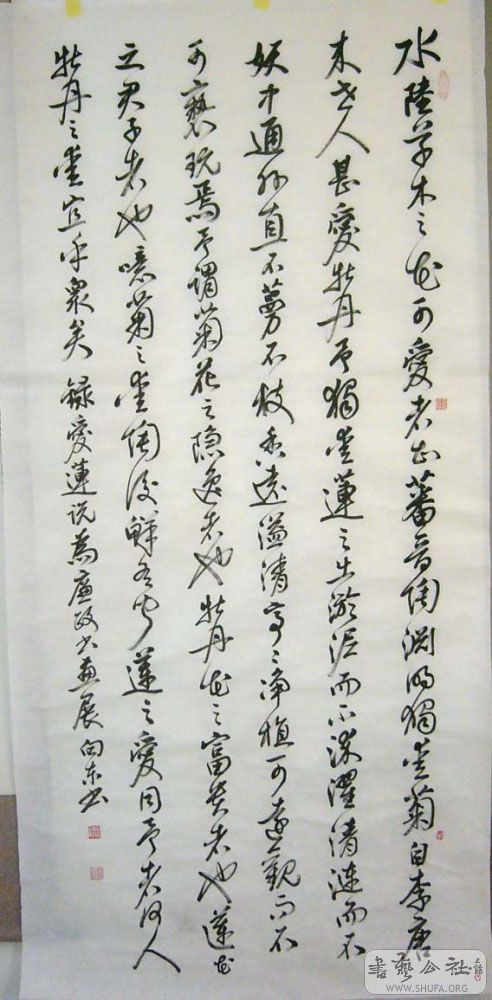 水陸草木之花可愛者甚蕃晉陶渊明獨爱菊自李唐
来世人甚愛牡丹予獨爱蓮之出淤泥而不染濯清漣而不
妖中通外直不蔓不枝香遠溢清亭々净植可遠觀而不
可褻玩焉予謂菊花之隐逸者也牡丹花之富贵者也蓮花
之君子者也噫菊之爱陶後鲜有闻蓮之愛同予者何人
牡丹之爱宜乎衆矣 録愛蓮说為廉政书画展 向东书
書藝公社
WWW.SHUFA.ORG